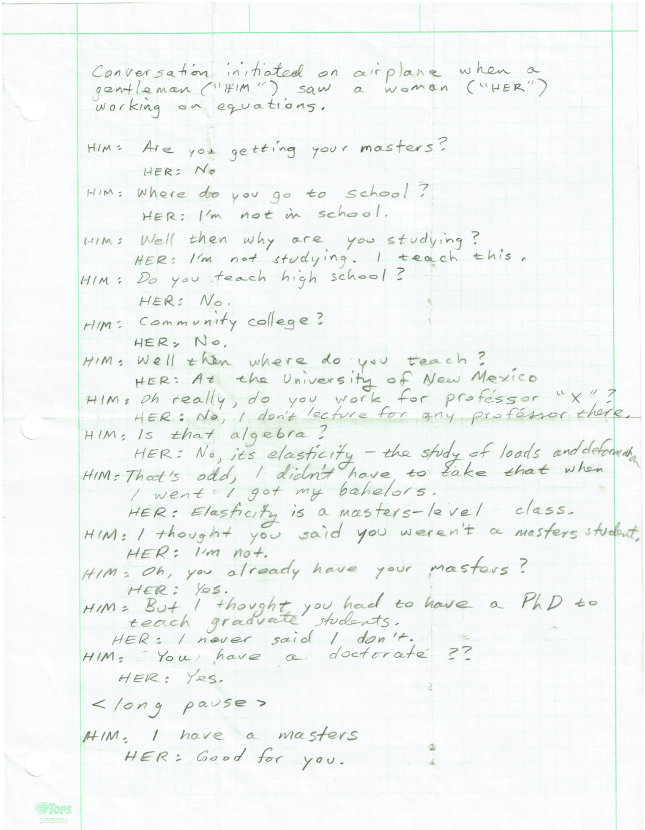 Conversation initiated on airplane when a
gentleman ("HIM") saw a woman ("HER")
working on equations.
HIM: Are you getting your masters?
HER: No
HIM: Where do you go to school?
HER: I'm not in school.
HIM: Well then why are you studying?
HER: I'm not studying. I teach this.
HIM: Do you teach high school?
HER: No.
HIM: Community college?
HER: No.
HIM: Well then where do you teach?
HER: At the University of New Mexico
HIM: Oh really, do you work for professor "X"?
HER: No, I don't lecture for any professor there.
HIM: Is that algebra?
HER: No, its elasticity – the study of loads and deformation
HIM: That's odd, I didn't have to take that when
I went I got my bahelors.
HER: Elasticity is a masters-level class.
HIM: I thought you said you weren't a masters student.
HER: I'm not.
HIM: Oh, you already have your masters?
HER: Yes.
HIM: But I thought you had to have a PhD to
teach graduate students.
HER: I never said I don't.
HIM: You have a doctorate??
HER: Yes.
<long pause>
HIM: I have a masters
HER: Good for you.
TOPS